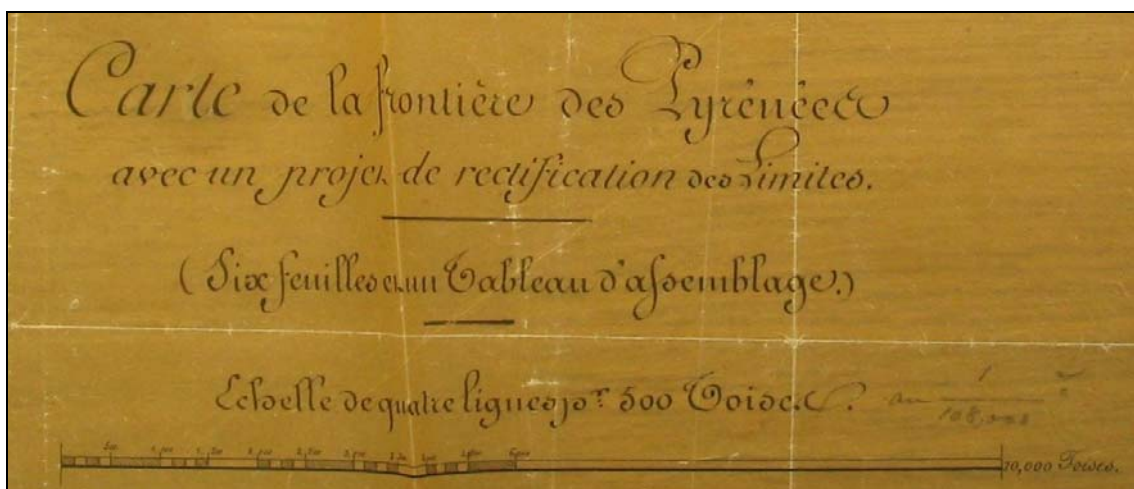 Carte de la frontière des Pyrénées
avec un projet de rectification des Limites.
(Six feuilles et un Tableau d'assemblage.)
Echelle de quatre lignes pr. 500 Toises.
au 1/108,000
500
10,000 Toises.